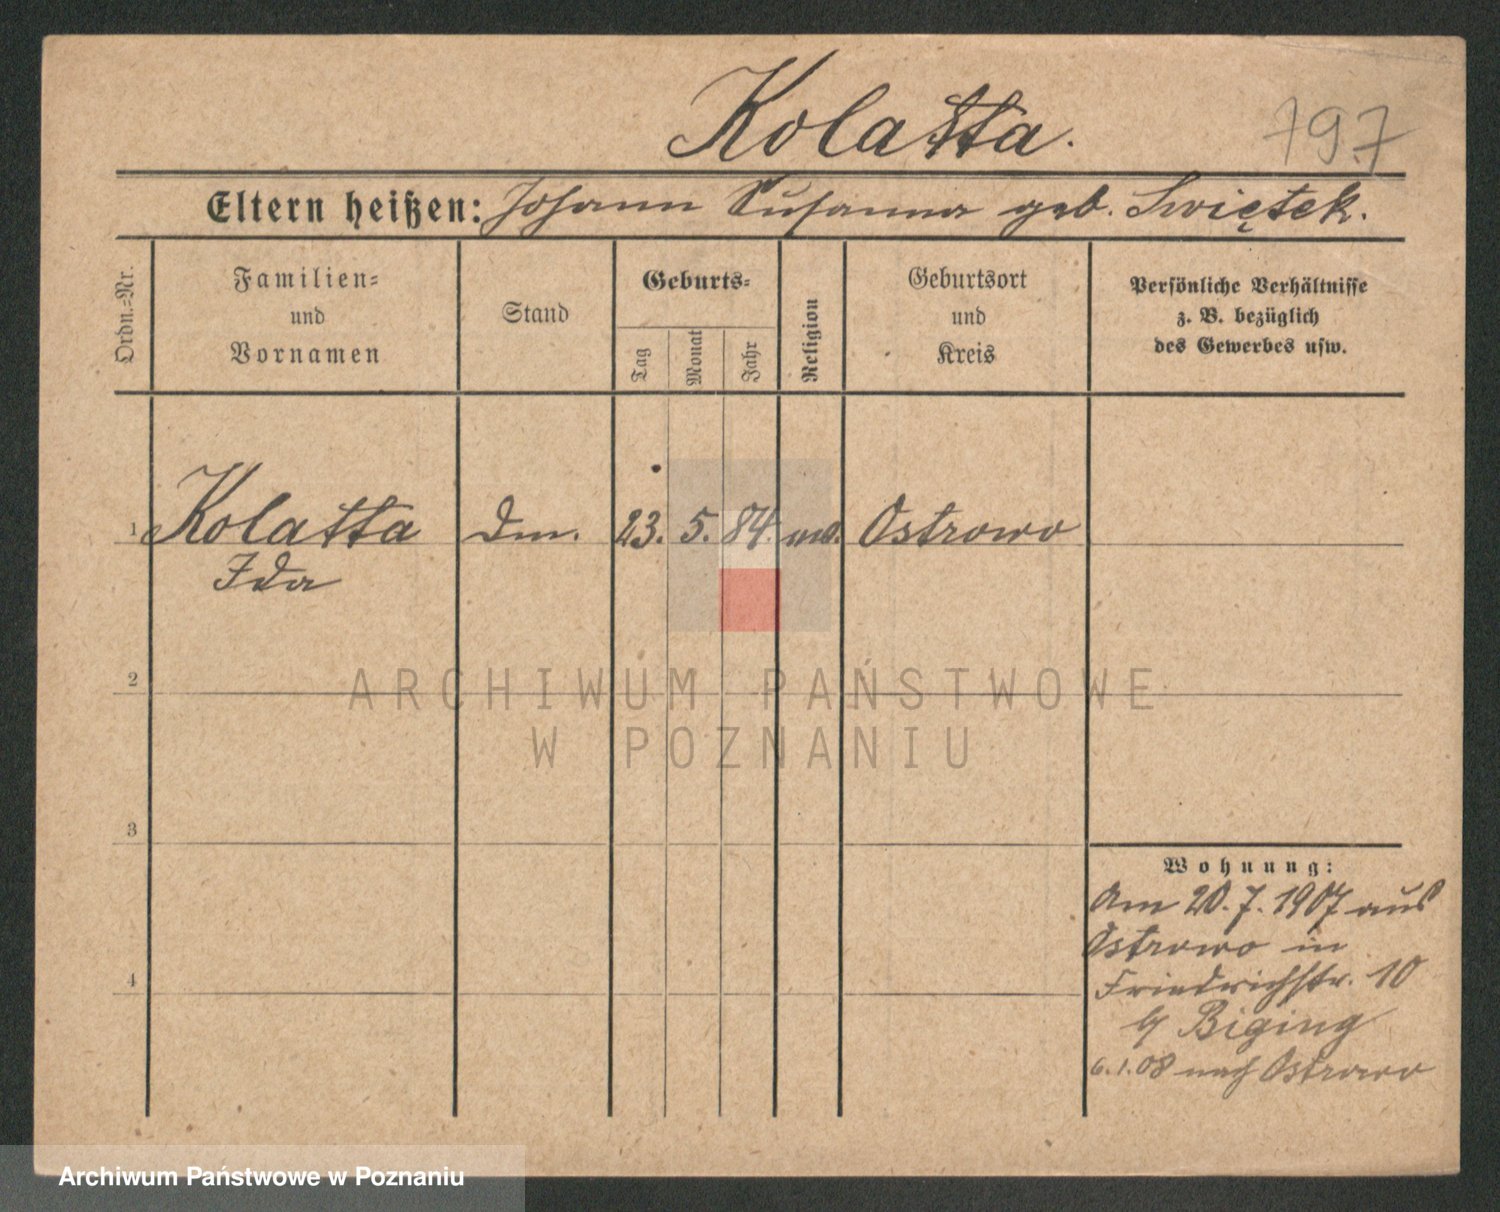 Kolatta.
797
Eltern heißen: Johann Susanna geb. Swiętek.
Ordn.=Nr.
Familien=
und
Vornamen
Stand
Geburts=
Tag
Monat
Jahr
Religion
Geburtsort
und
Kreis
Persönliche Verhältnisse
z. B. bezüglich
des Gewerbes usw.
1 Kolatta 23. 5. 84. Ostrowo
Ida
2
ARCHIWUM PAŃSTWOWE
W POZNANIU
3
Wohnung:
Am 20. 7. 1907 aus
Ostrowo in
4
Friedrichstr. 10
b/ Biging
6.1.08 nach Ostrowo
Archiwum Państwowe w Poznaniu